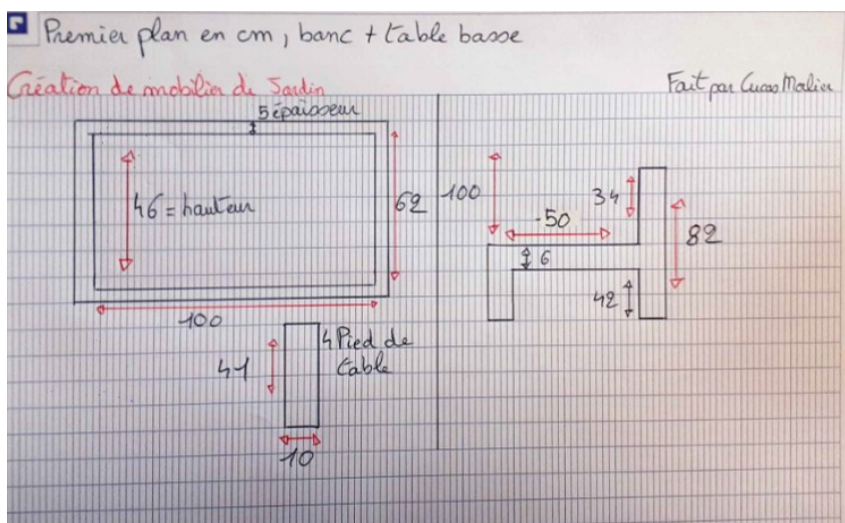 Premier plan en cm, banc + table basse
Création de mobilier de Jardin
Fait par Lucas Malier
5 épaisseur
46 = hauteur
62
100
41
4 Pied de
table
10
100
50
34
82
6
42